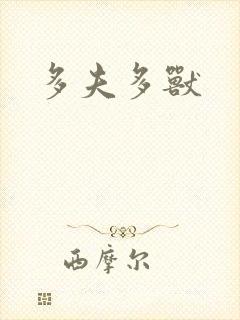 多夫多獸
西摩尔